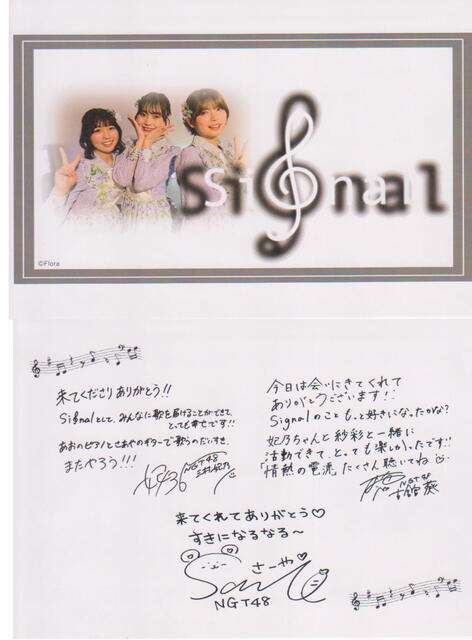 Signal
©Flora
来てくださりありがとう!!
Signalとして、みんなに歌を届けることができて、
とっても幸せです!!
あおのピアノとさあやのギターで歌うのだいすき。
またやろう!!!
NGT48
今日は会いにきてくれて
ありがとうございます!!
Signalのこともっと好きになったかな?
妃乃ちゃんと紗彩と一緒に
活動できて、とっても楽しかったです!!
「情熱の電流」たくさん聴いてね
NGT48
古舘葵
来てくれてありがとう♡
すきになるなる〜
さーや♡
NGT48